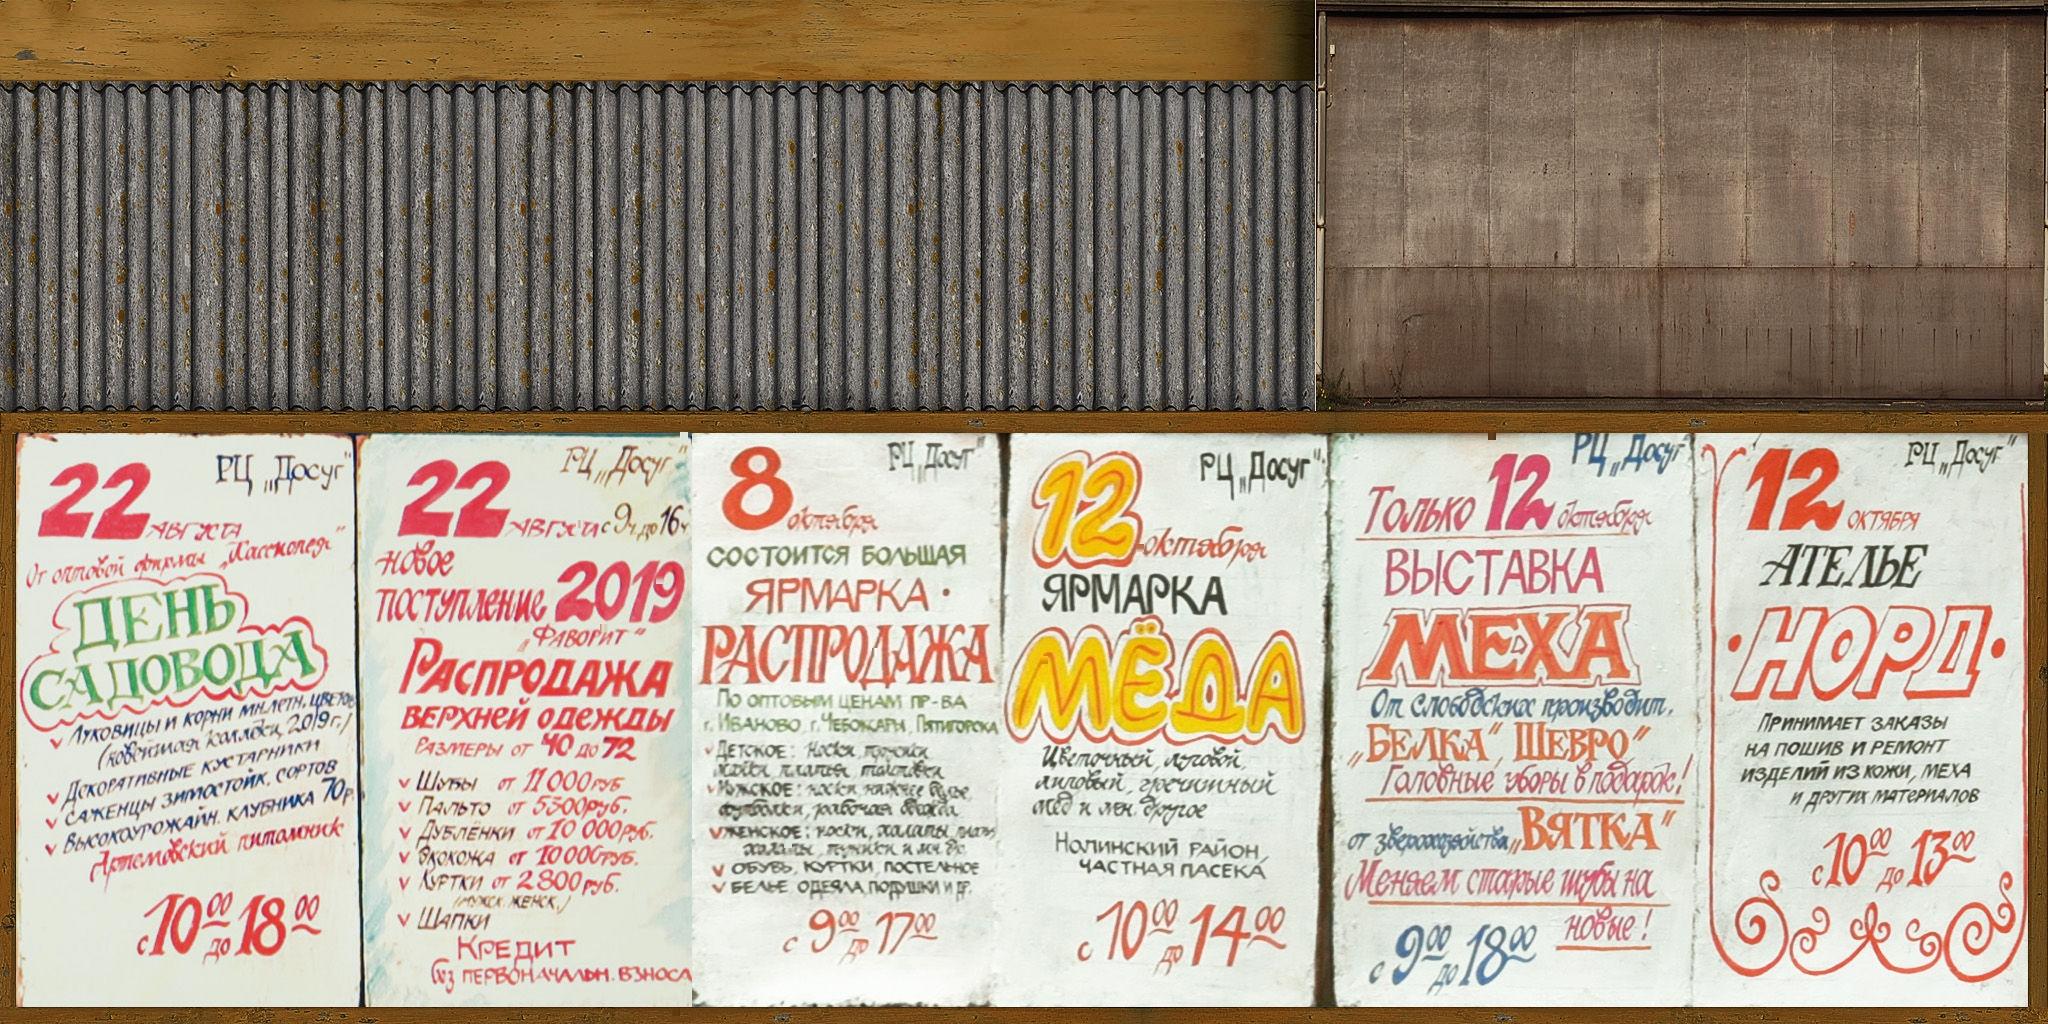 РЦ „Досуг"
22 АВГУСТА
От оптовой фирмы „Кассиопея"
ДЕНЬ
САДОВОДА
Луковицы и корни мн.летн. цветов
2019 г.)
Декоративные кустарники
Саженцы зимостойк. сортов
Высокоурожайн. клубника 70р.
Артемовский питомник
с 10 00 до 18 00
РЦ „Досуг"
22 АВГУСТА с 9ч. до 16ч
новое
поступление 2019
„Фаворит"
Распродажа
верхней одежды
Размеры от 40 до 72
Шубы от 11 000 руб
Пальто от 5500руб.
Дублёнки от 10 000руб.
Экокожа от 10 000руб.
Куртки от 2800 руб.
(мужск. женск.)
Шапки
Кредит
без первоначальн. взноса
РЦ „Досуг"
8 октября
состоится большая
ярмарка ·
распродажа
По оптовым ценам пр-ва
г. Иваново, г. Чебоксары, Пятигорска
Детское: носки, трусики
майки, платья,
Мужское: носки, нижнее белье,
футболки, рабочая одежда
Женское: носки, халаты,
и мн. др.
Обувь, куртки, постельное
белье, одеяла, подушки и др.
с 9 00 до 17 00
РЦ „Досуг"
12 октября
ЯРМАРКА
МЁДА
Цветочный, луговой,
липовый, гречишный
мёд и мн. другое
Нолинский район,
частная пасека
с 10 00 до 14 00
РЦ „Досуг"
Только 12 октября
ВЫСТАВКА
МЕХА
От слободских производит.
„БЕЛКА", ШЕВРО"
Головные уборы в подарок!
от зверохозяйства „ВЯТКА"
Меняем старые шубы на
новые!
с 9 00 до 18 00
РЦ „Досуг"
12 ОКТЯБРЯ
АТЕЛЬЕ
· НОРД ·
Принимает заказы
на пошив и ремонт
изделий из кожи, меха
и других материалов
с 10 00 до 13 00